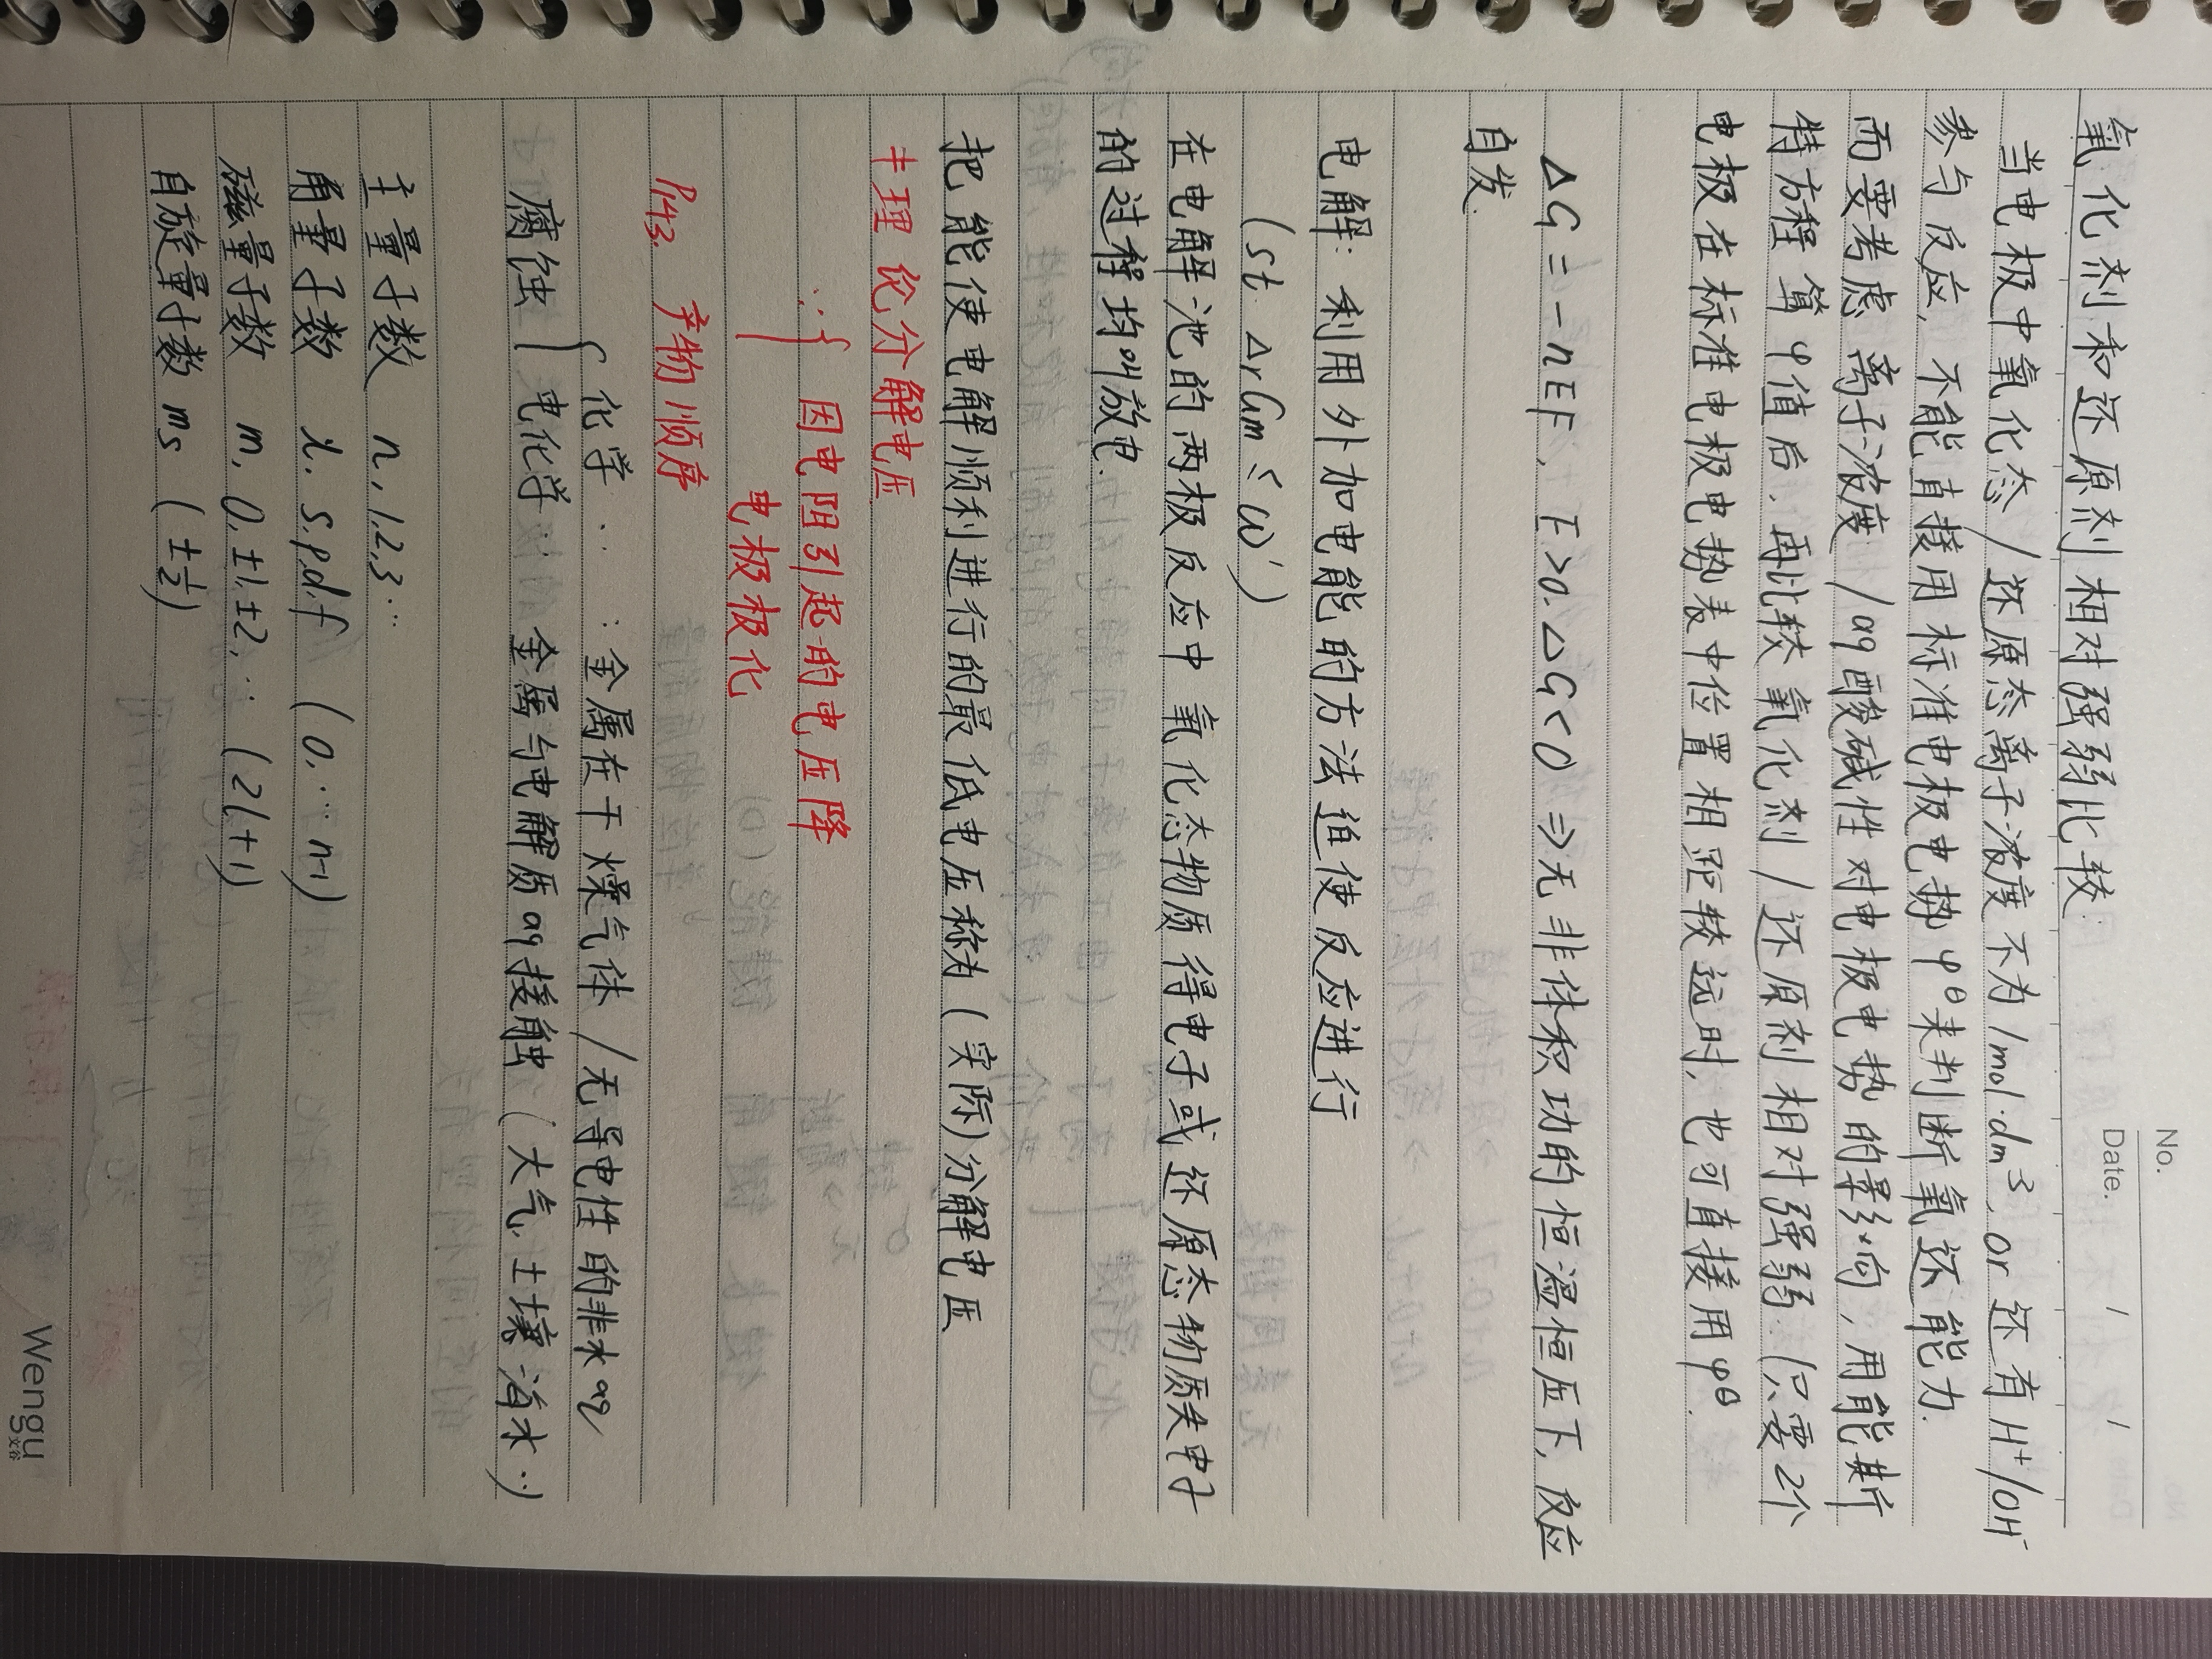 No.
Date. / /
氧化剂和还原剂相对强弱比较:
当电极中氧化态/还原态离子浓度不为1mol·dm³, or 还有H⁺/OH⁻
参与反应, 不能直接用标准电极电势φ^θ来判断氧还能力.
而要考虑离子浓度/aq酸碱性对电极电势的影响, 用能斯
特方程算φ值后, 再比较氧化剂/还原剂相对强弱. (只要2个
电极在标准电极电势表中位置相距较远时, 也可直接用φ^θ.
ΔG = -nEF, E>0. ΔG<0 ⇒ 无非体积功的恒温恒压下, 反应
自发.
电解: 利用外加电能的方法迫使反应进行
(st. ΔrGm ≤ ω')
在电解池的两极反应中氧化态物质得电子或还原态物质失电子
的过程均叫放电.
把能使电解顺利进行的最低电压称为(实际)分解电压
≠理论分解电压
∵{ 因电阻引起的电压降
电极极化
P143. 产物顺序
化学‥ : 金属在干燥气体/无导电性的非水aq
腐蚀{ 电化学‥ 金属与电解质aq接触 (大气, 土壤 海水‥)
主量子数 n, 1,2,3…
角量子数 l. s,p,d,f (0,…n-1)
磁量子数 m, 0,±1,±2,… (2l+1)
自旋量子数 ms (±1/2)
Wengu
文谷